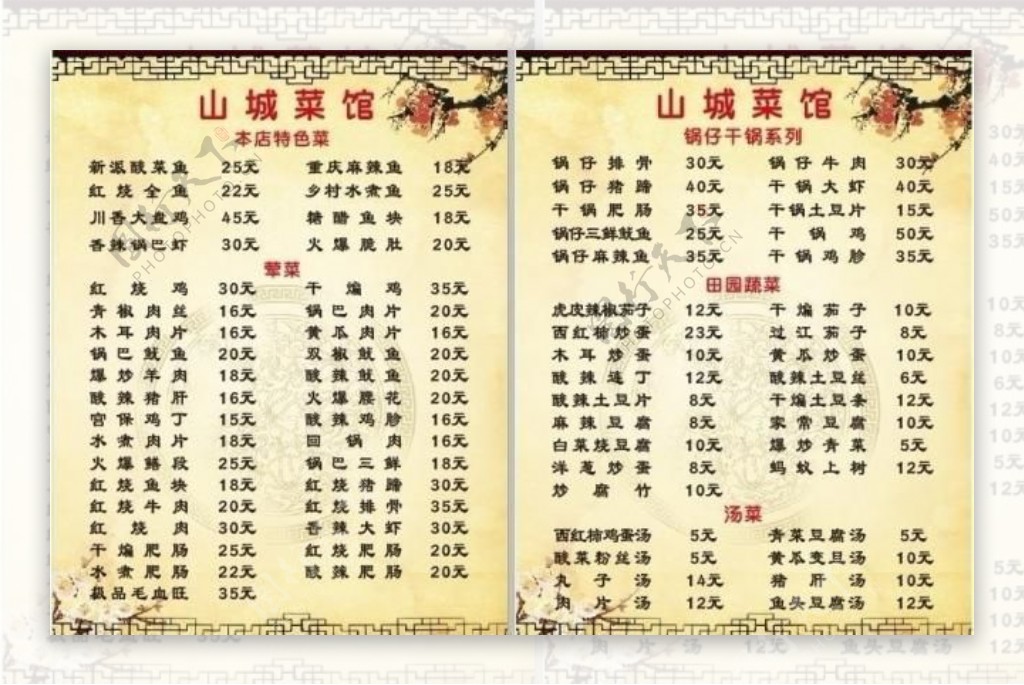 山城菜馆
本店特色菜
新派酸菜鱼 25元 重庆麻辣鱼 18元
红烧全鱼 22元 乡村水煮鱼 25元
川香大盘鸡 45元 糖醋鱼块 18元
香辣锅巴虾 30元 火爆脆肚 20元
荤菜
红烧鸡 30元 干煸鸡 35元
青椒肉丝 16元 锅巴肉片 20元
木耳肉片 16元 黄瓜肉片 16元
锅巴鱿鱼 20元 双椒鱿鱼 20元
爆炒羊肉 18元 酸辣鱿鱼 20元
酸辣猪肝 16元 火爆腰花 20元
宫保鸡丁 15元 酸辣鸡胗 16元
水煮肉片 18元 回锅肉 16元
火爆鳝段 25元 锅巴三鲜 18元
红烧鱼块 18元 红烧猪蹄 30元
红烧牛肉 20元 红烧排骨 35元
红烧肉 30元 香辣大虾 30元
干煸肥肠 25元 红烧肥肠 20元
水煮肥肠 22元 酸辣肥肠 20元
极品毛血旺 35元
山城菜馆
锅仔干锅系列
锅仔排骨 30元 锅仔牛肉 30元
锅仔猪蹄 40元 干锅大虾 40元
干锅肥肠 35元 干锅土豆片 15元
锅仔三鲜鱿鱼 25元 干锅鸡 50元
锅仔麻辣鱼 35元 干锅鸡胗 35元
田园蔬菜
虎皮辣椒茄子 12元 干煸茄子 10元
西红柿炒蛋 23元 过江茄子 8元
木耳炒蛋 10元 黄瓜炒蛋 10元
酸辣莲丁 12元 酸辣土豆丝 6元
酸辣土豆片 8元 干煸土豆条 12元
麻辣豆腐 8元 家常豆腐 10元
白菜烧豆腐 10元 爆炒青菜 5元
洋葱炒蛋 8元 蚂蚁上树 12元
炒腐竹 10元
汤菜
西红柿鸡蛋汤 5元 青菜豆腐汤 5元
酸菜粉丝汤 5元 黄瓜变旦汤 10元
丸子汤 14元 猪肝汤 10元
肉片汤 12元 鱼头豆腐汤 12元